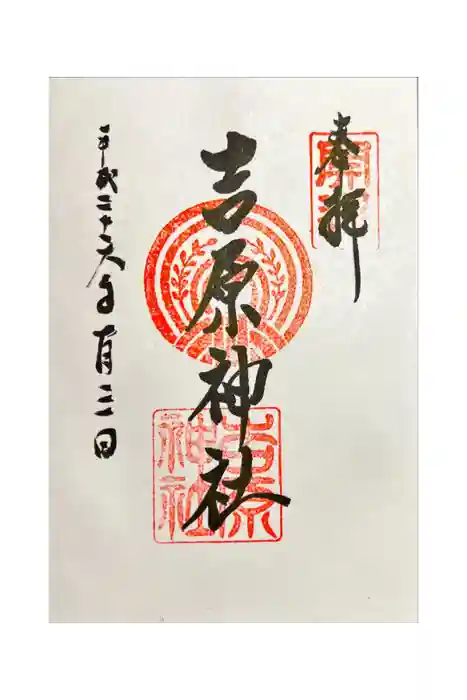 奉拝
開運
吉原神社
吉原
神社
平成二十六年月三日